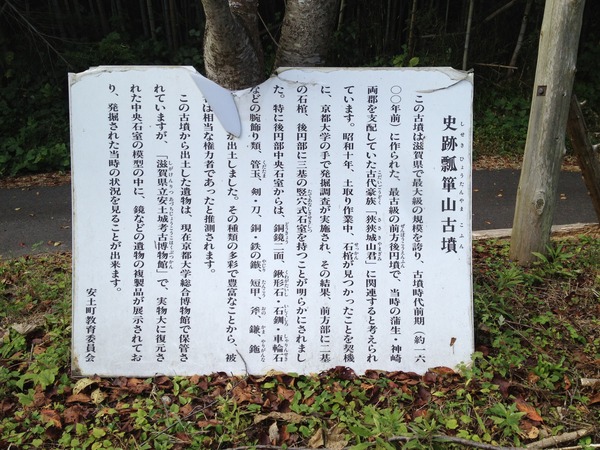 史跡瓢箪山古墳
しせきひょうたんやまこふん
この古墳は滋賀県で最大級の規模を誇り、古墳時代前期（約一六
〇〇年前）に作られた、最古級の前方後円墳で、当時の蒲生・神崎
両郡を支配していた古代豪族「狭狭城山君」に関連すると考えられ
ています。昭和十年、土取り作業中、石棺が見つかったことを契機
に、京都大学の手で発掘調査が実施され、その結果、前方部に二基
の石棺、後円部に三基の竪穴式石室を持つことが明らかにされまし
た。特に後円部中央石室からは、銅鏡二面、鍬形石・石釧・車輪石
などの腕飾り類、管玉、剣・刀、銅・鉄の鏃、短甲、斧、鎌、鉇
が出土しました。その種類の多彩で豊富なことから、被
者は相当な権力者であったと推測されます。
この古墳から出土した遺物は、現在京都大学総合博物館で保管さ
れていますが、「滋賀県立安土城考古博物館」で、実物大に復元さ
れた中央石室の模型の中に、鏡などの遺物の複製品が展示されてお
り、発掘された当時の状況を見ることが出来ます。
安土町教育委員会